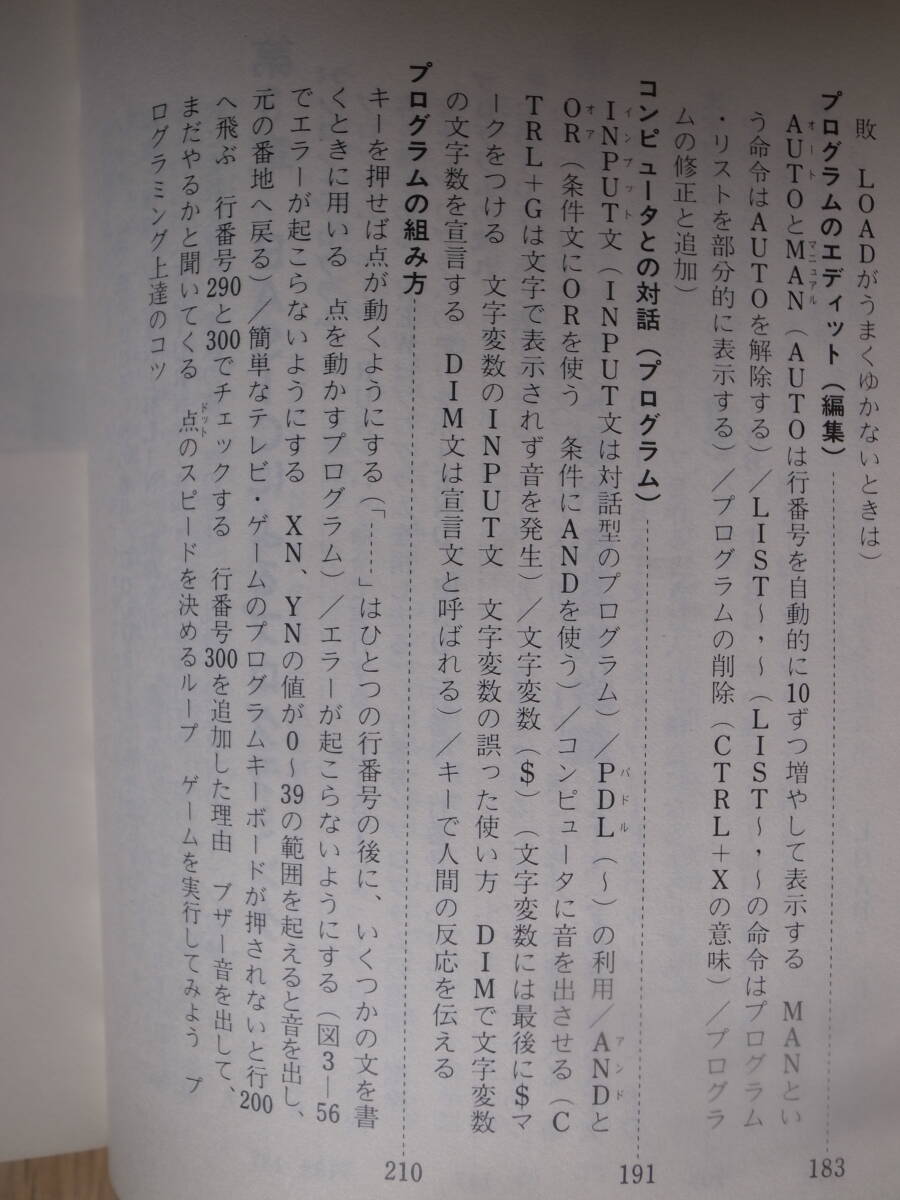 敗　LOADがうまくゆかないときは）
プログラムのエディット（編集）……183
AUTOとMAN（AUTOは行番号を自動的に10ずつ増やして表示する　MANとい
う命令はAUTOを解除する）／LIST～，～（LIST～，～の命令はプログラム
・リストを部分的に表示する）／プログラムの削除（CTRL＋Xの意味）／プログラ
ムの修正と追加）
コンピュータとの対話（プログラム）……191
INPUT文（INPUT文は対話型のプログラム）／PDL（～）の利用／ANDと
OR（条件文にORを使う　条件にANDを使う）／コンピュータに音を出させる（C
TRL＋Gは文字で表示されず音を発生）／文字変数（$）（文字変数には最後に$マ
ークをつける　文字変数のINPUT文　文字変数の誤った使い方　DIMで文字変数
の文字数を宣言する　DIM文は宣言文と呼ばれる）／キーで人間の反応を伝える
プログラムの組み方……210
キーを押せば点が動くようにする（「……」はひとつの行番号の後に、いくつかの文を書
くときに用いる　点を動かすプログラム）／エラーが起こらないようにする（図3―56
でエラーが起こらないようにする　XN、YNの値が0～39の範囲を起えると音を出し、
元の番地へ戻る）／簡単なテレビ・ゲームのプログラムキーボードが押されないと行200
へ飛ぶ　行番号290と300でチェックする　行番号300を追加した理由　ブザー音を出して、
まだやるかと聞いてくる　点のスピードを決めるループ　ゲームを実行してみよう　プ
ログラミング上達のコツ